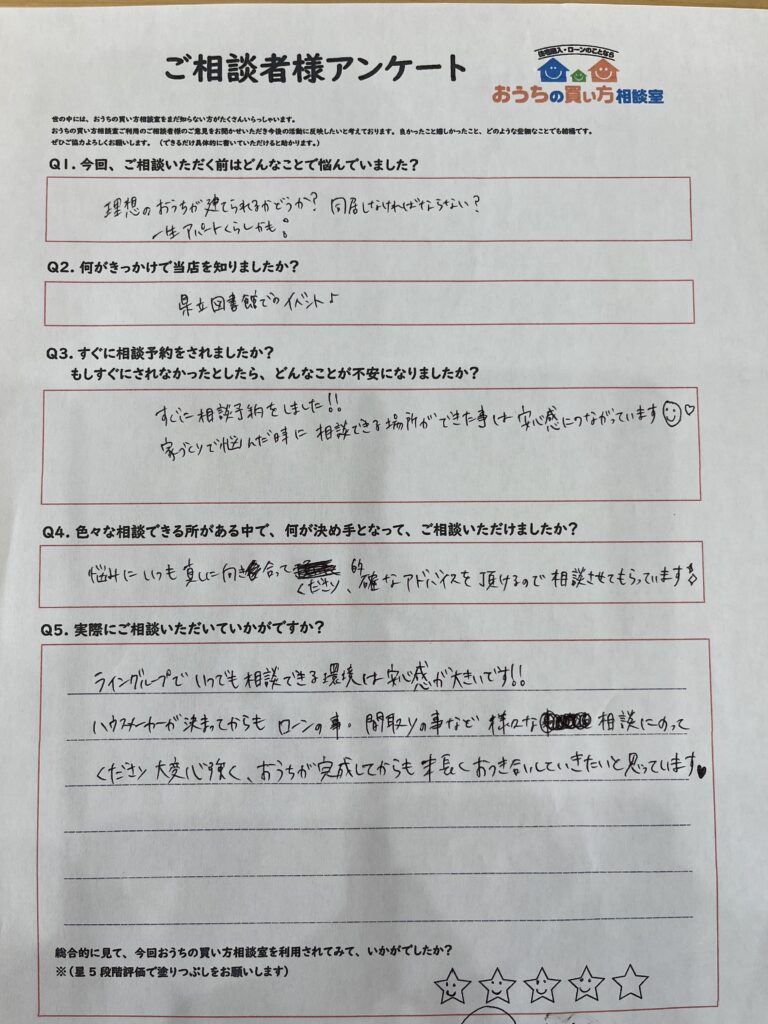 ご相談者様アンケート
住宅購入・ローンのことなら
おうちの買い方相談室
世の中には、おうちの買い方相談室をまだ知らない方がたくさんいらっしゃいます。
おうちの買い方相談室ご利用のご相談者様のご意見をお聞かせいただき今後の活動に反映したいと考えております。良かったこと嬉しかったこと、どのような些細なことでも結構です。
ぜひご協力よろしくお願いします。（できるだけ具体的に書いていただけると助かります。）
Q1. 今回、ご相談いただく前はどんなことで悩んでいましたか？
理想のおうちが建てられるかどうか？ 同居しなければならない？
一生アパートくらしかも
Q2. 何がきっかけで当店を知りましたか？
県立図書館でのイベント♪
Q3. すぐに相談予約をされましたか？
もしすぐにされなかったとしたら、どんなことが不安になりましたか？
すぐに相談予約をしました!!
家づくりで悩んだ時に相談できる場所ができた事は安心感につながっています♡
Q4. 色々な相談できる所がある中で、何が決め手となって、ご相談いただけましたか？
悩みにいつも真しに向き合ってくださり、的確なアドバイスを頂けるので相談させてもらっています
Q5. 実際にご相談いただいていかがですか？
ライングループでいつでも相談できる環境は安心感が大きいです!!
ハウスメーカーが決まってからもローンの事・間取りの事など様々な相談にのって
くださり大変心強く、おうちが完成してからも末長くおつき合いしていきたいと思っています♥
総合的に見て、今回おうちの買い方相談室を利用されてみて、いかがでしたか？
※（星5段階評価で塗りつぶしをお願いします）